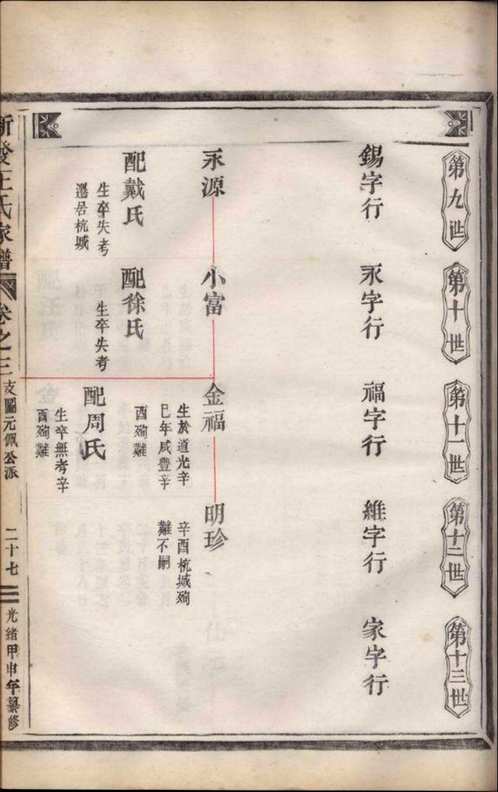 第九世
第十世
第十一世
第十二世
第十三世
錫字行
永字行
福字行
維字行
家字行
永源
小富
金福
明珍
生於道光辛
巳年咸豐辛
酉殉難
辛酉杭城殉
難不嗣
配戴氏
生卒失考
遷居杭城
配徐氏
生卒失考
配周氏
生卒無考辛
酉殉難
王氏家譜
卷之三
支圖元佩公派
二十七
光緒甲申年纂修